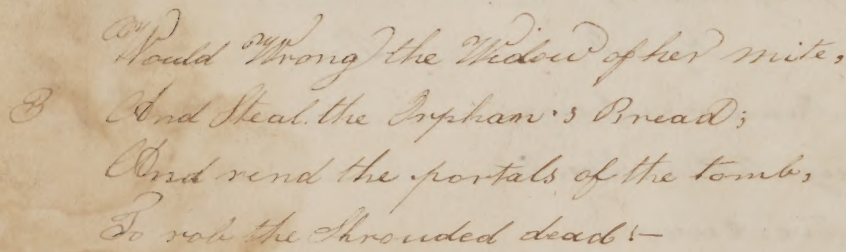 Would Wrong the Widow of her mite,
B And Steal. the Orphan's Bread;
And rend the portals of the tomb,
To rob the Shrouded dead!—